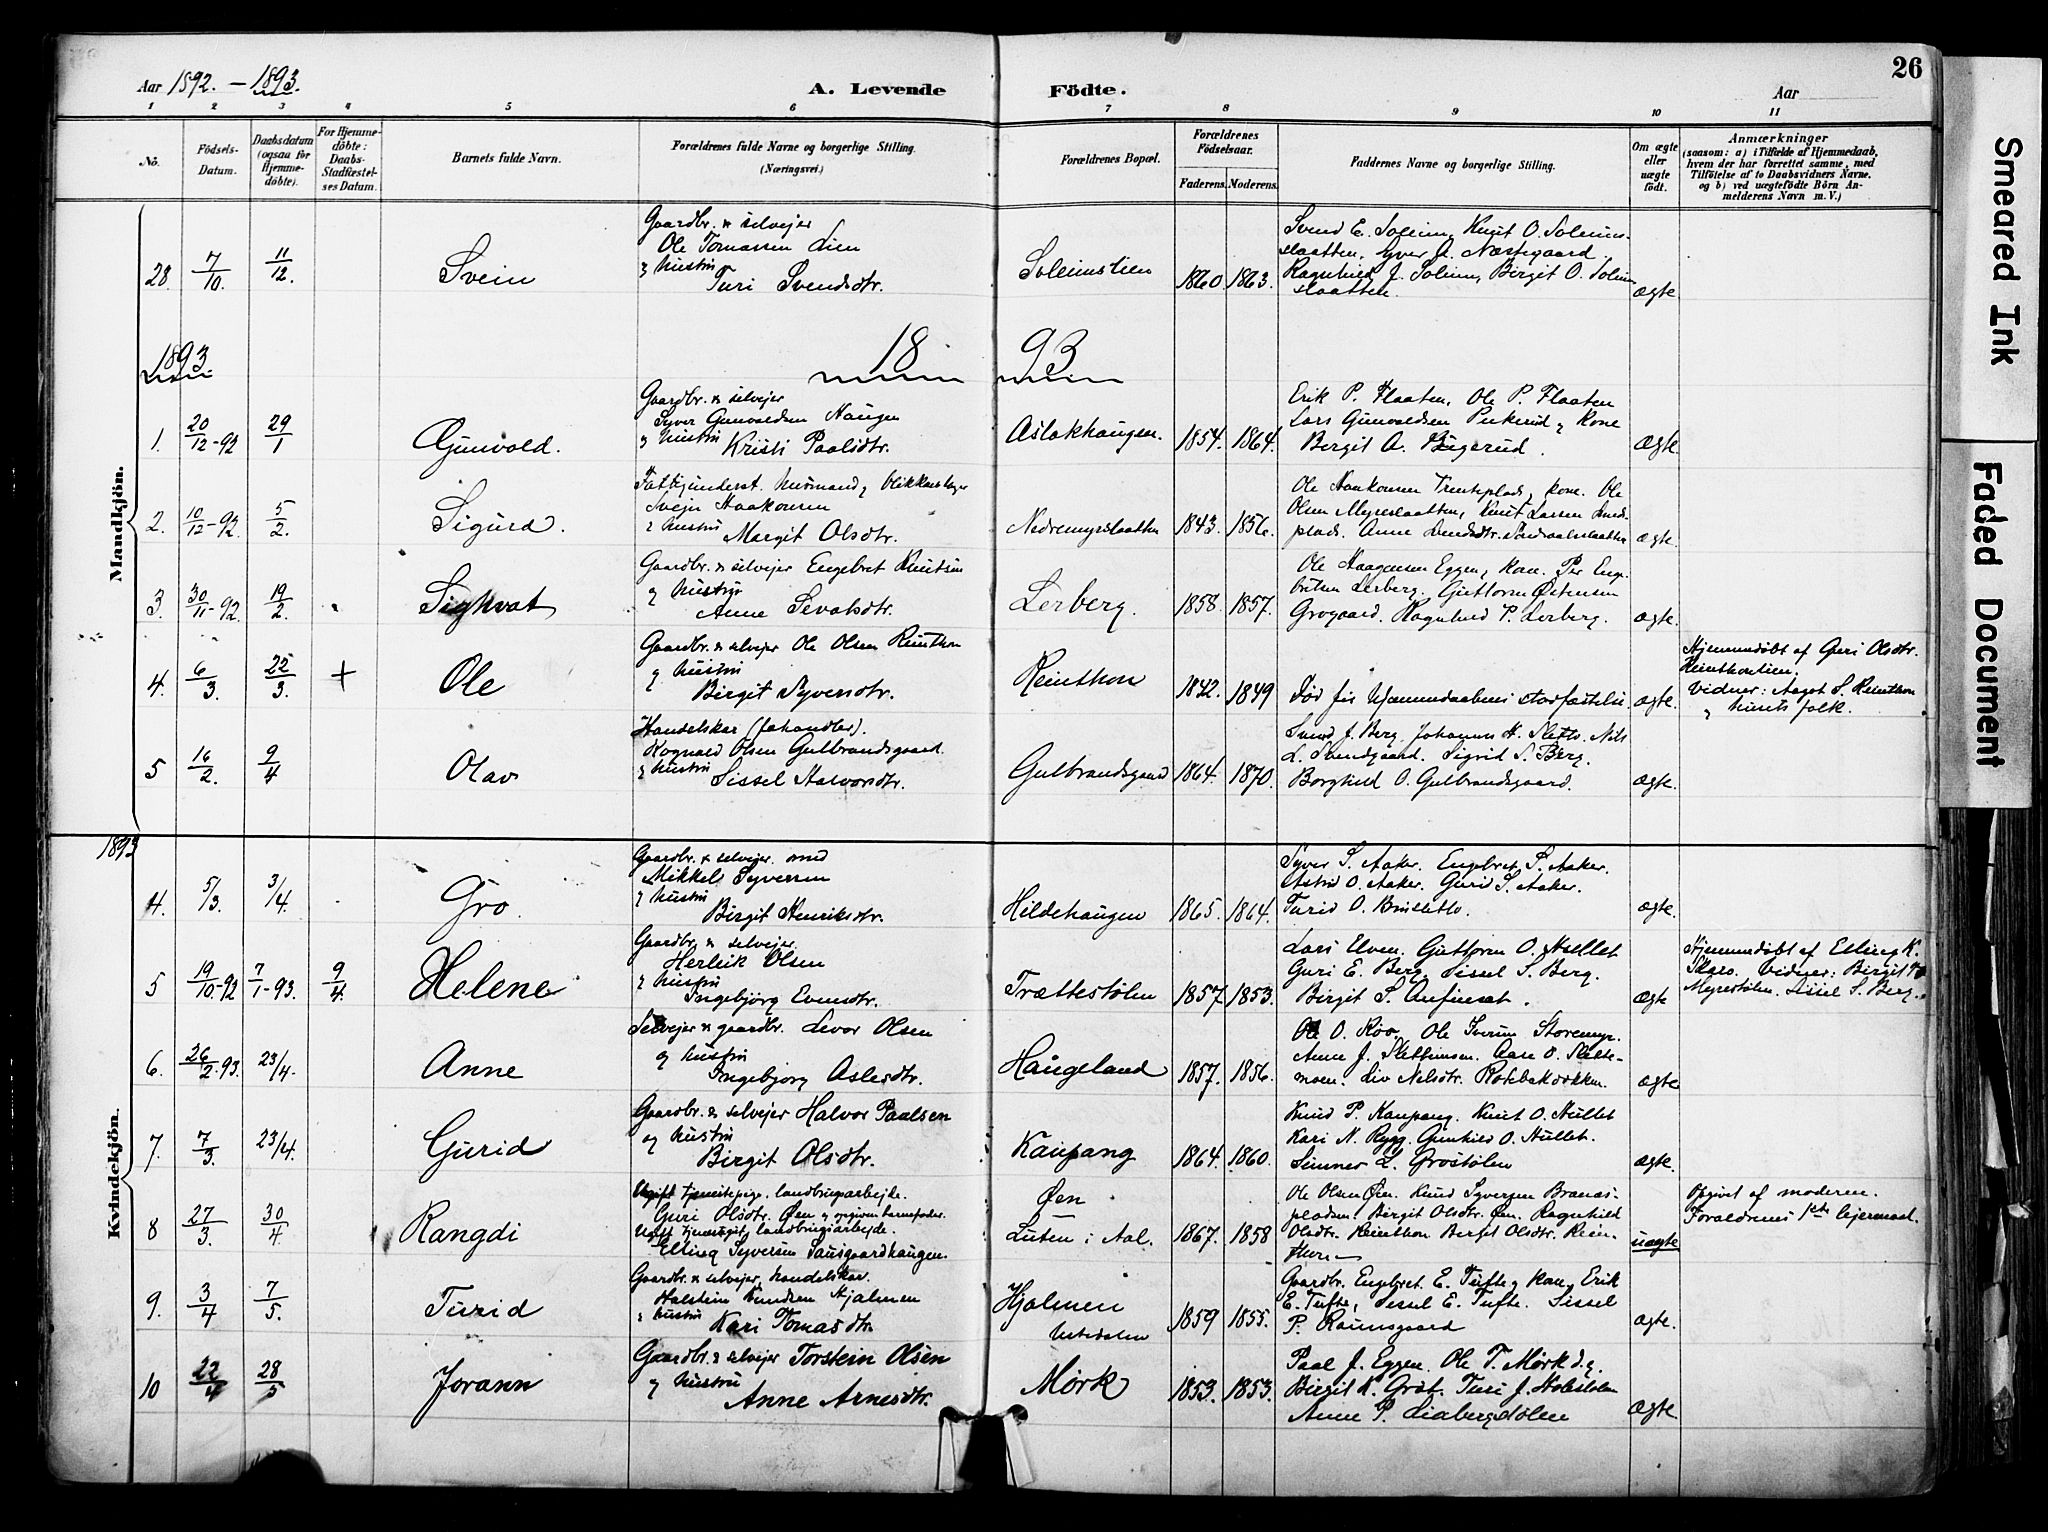 26
Aar 1892. — 1893.
A. Levende Födte.
Aar
1 2 3 4 5 6 7 8 9 10 11
No.
Födsels-Datum.
Daabsdatum (ogsaa for Hjemme-döbte).
For Hjemme-döbte: Daabs-Stadfæstel-ses Datum.
Barnets fulde Navn.
Forældrenes fulde Navne og borgerlige Stilling. (Næringsvei.)
Forældrenes Bopæl.
Forældrenes Födselsaar.
Faderens. Moderens.
Faddernes Navne og borgerlige Stilling.
Om ægte eller uægte födt.
Anmærkninger
(saasom: a) i Tilfælde af Hjemmedaab,
hvem der har forrettet samme, med
Tilföielse af to Daabsvidners Navne.
og b) ved uægtefödte Börn An-
melderens Navn m. V.)
Mandkjön.
28. 7/10. 11/12. Svein
Gaardbr. & selvejer
Ole Tomassen Lien
og hustru
Turi Svendsdtr.
Soleimslien 1860. 1863.
Svend E. Soleim, Knut O. Soleims-
slaatten, Syver A. Næstegaard
Ragnhild J. Soleim, Birgit O. Soleim
slaatten.
ægte.
1893
18 93
1. 20/12-92 29/1 Gunvald.
Gaardbr. & selvejer
Syver Gunvaldsen Haugen
og hustru
Kristi Paalsdtr.
Aslakhaugen. 1854. 1864.
Erik P. Flaaten, Ole P. Flaaten
Lars Gunvaldsen og kone
Bergit A.
ægte.
2. 10/12-92. 5/2. Sigurd.
Fattigunderst. husmand og blikkenslager
Svejn Haakonsen
og hustru
Margit Olsdtr.
Nedremyrslaatten 1843. 1856.
Ole Haakonsen og kone. Ole
Olsen Myreslaatten, Knut Larsen
plads. Anne
ægte.
3. 30/11-92. 19/2. Sighvat
Gaardbr. & selvejer Engebret Knutsen
og hustru
Anne Sevatsdtr.
Lerberg. 1858. 1857.
Ole Haagensen Eggen og kone. Per Enge-
bretsen Lerberg. Guttorm Østensen
Grogaard. Ragnhild P. Lerberg.
ægte.
4. 6/3. 22/3. + Ole
Gaardbr. & selvejer Ole Olsen Reinthon
og hustru
Birgit Syversdtr.
Reinthon 1842. 1849
Død før hjemmedaabens stadfæstelse.
ægte.
Hjemmedøbt af Guri Olsdtr.
Reinthonlien.
Vidner: Aagot S. Reinthon
og husets folk.
5 16/2. 9/4 Olav
Handelskar (fehandler).
Rognald Olsen Gulbrandsgaard.
og hustru
Sissel Halvorsdtr.
Gulbrandsgaard 1864. 1870.
Svend J. Berg. Johannes H. Sletto. Nils
L. Svendgaard. Sigrid S. Berg.
Borghild O. Gulbrandsgaard.
ægte.
Kvindekjön.
1893
4. 5/3. 3/4. Gro.
Gaardbr. & selvejer. smed
Mikkel Syversen
og hustru
Birgit Henriksdtr.
Hildehaugen 1865. 1864.
Syver S. Aaker. Engebret S. Aaker.
Astrid O. Aaker. Guri S. Aaker.
Turid O.
ægte.
5 19/10-92 7/1-93. 9/4. Helene
Gaardbr. & selvejer.
Herleik Olsen
og hustru
Ingebjörg Evensdtr.
Trættestølen 1857. 1853.
Lars Elven. Guttorm O. Hullet
Guri E. Berg. Sissel S. Berg.
Birgit S. Anfinset.
ægte
Hjemmedøbt af Elling K.
Skaro. Vidner: Birgit
Myrestølen. Sissel S. Berg.
6. 26/2-93. 23/4. Anne
Selvejer & gaardbr. Levor Olsen
og hustru
Ingebjörg Aslesdtr.
Haugeland 1857. 1856.
Ole O. Roo. Ole Iversen Storemyr.
Anne J. Aase O. Slette-
moen. Liv Nilsdtr.
ægte
7. 7/3. 23/4. Gurid
Gaardbr. & selvejer Halvor Paalsen
og hustru
Birgit Olsdtr.
Kaupang 1864. 1860.
Knud P. Kaupang. Knut O. Hullet
Kari N. Rygg. Gunhild O. Hullet.
L. Grøstølen
ægte.
8 27/3. 30/4 Rangdi
Ugift tjenestepige. landbrugsarbejde.
Guri Olsdtr. Øen og opgiven barnefader.
Ugift landbrugsarbejde.
Elling Syversen Sausgaardhaugen.
Øen
Luten i Aal. 1867. 1858
Ole Olsen Øen. Knud Syversen Branas-
pladsen. Birgit Olsdtr. Øen. Ragnhild
Olsdtr. Reinthon Berget Olsdtr. Rein-
thon
uægte
Opgivet af moderen.
Forældrenes 1ste lejermaal.
9. 3/4 7/5. Turid
Gaardbr. & selvejer, handelskar.
Holstein Knudsen Hjalmen
og hustru
Kari Tomasdtr.
Hjalmen
Ustedalen 1859 1855.
Gaardbr. Engebret E. Tufte og kone, Erik
E. Tufte, Sissel E. Tufte. Sissel
P. Raunsgaard
ægte.
10 22/4 28/5 Jorann
Gaardbr. & selvejer Torstein Olsen
og hustru
Anne Arnesdtr.
Mørk 1853. 1853.
Paal J. Eggen. Ole T. Mørk d.y.
Birgit K. Grøt. Turi J. Holestølen
Anne P. Liabergdølen
ægte
Smeared Ink
Faded Document